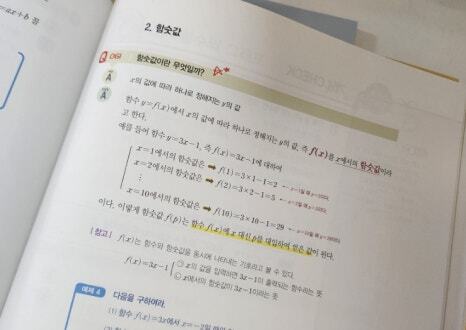 =ax+b 꼴
2. 함숫값
Q 함숫값이란 무엇일까?
A x의 값에 따라 하나로 정해지는 y의 값
A 함수 y=f(x)에서 x의 값에 따라 하나로 정해지는 y의 값, 즉 f(x)를 x에서의 함숫값이라
고 한다.
예를 들어 함수 y=3x-1, 즉 f(x)=3x-1에 대하여
x=1에서의 함숫값은 ➡ f(1)=3×1-1=2
x=2에서의 함숫값은 ➡ f(2)=3×2-1=5
⋮
x=10에서의 함숫값은 ➡ f(10)=3×10-1=29
이다. 이렇게 함숫값 f(p)는 함수 f(x)에 x 대신 p를 대입하여 얻은 값이 된다.
| 참고 | f(x)는 함수와 함숫값을 동시에 나타내는 기호라고 볼 수 있다.
f(x)=3x-1 ㉠ x의 값을 입력하면 3x-1이 출력되는 함수라는 뜻
㉡ x에서의 함숫값이 3x-1이라는 뜻
예제 4 다음을 구하여라.
(1) 함수 f(x)=3x에서 x=-2일 때의
(2) 함수